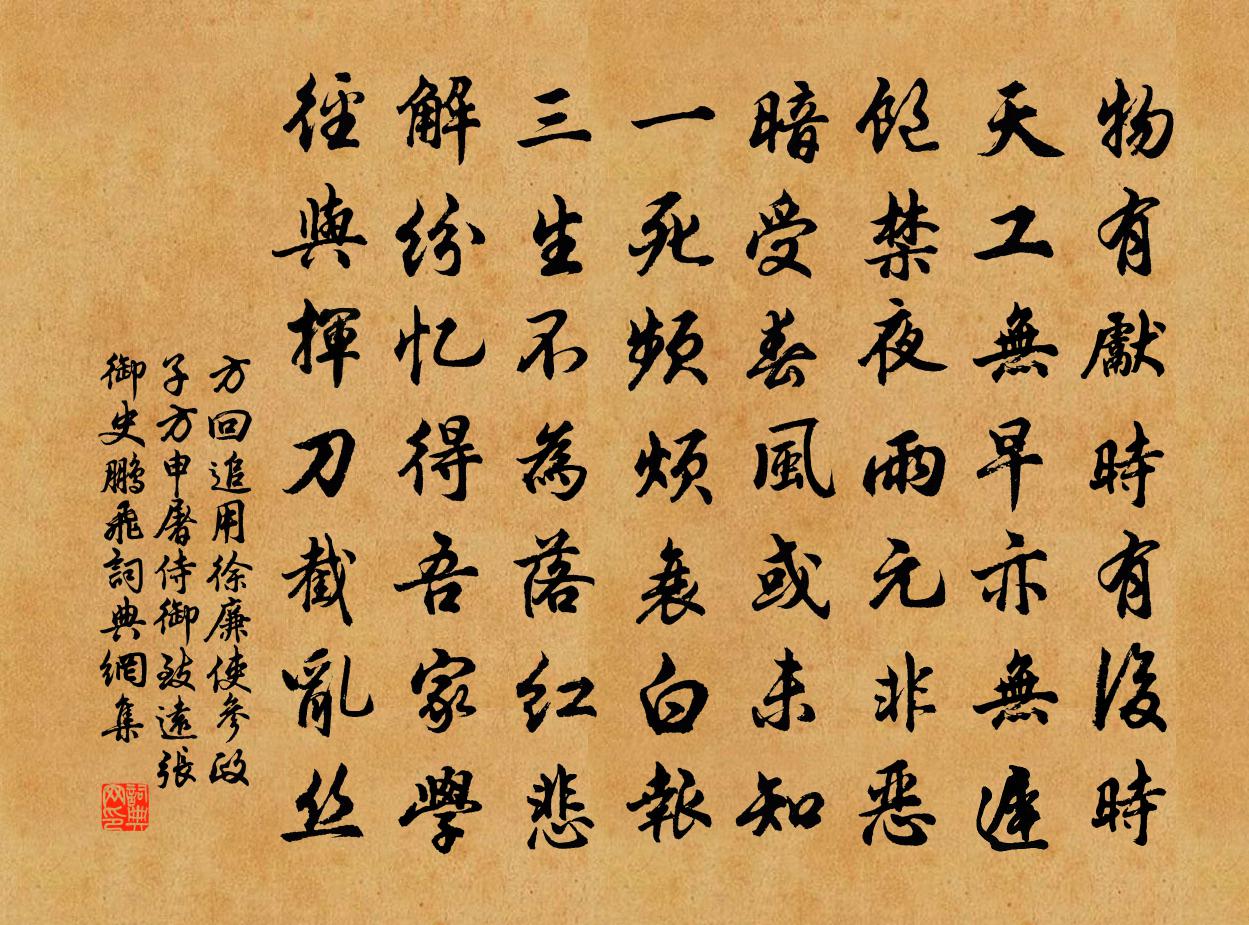 物有獻時有後時
天工無早亦無遲
飽禁夜雨元非惡
暗受春風或未知
一死頻煩衰白報
三生不為落紅悲
解紛忆得吾家學
徑與揮刀截亂丝
方回追用徐廉使參政
子方申屠侍御致遠張
御史鵬飛詞典網集
詞典
网印